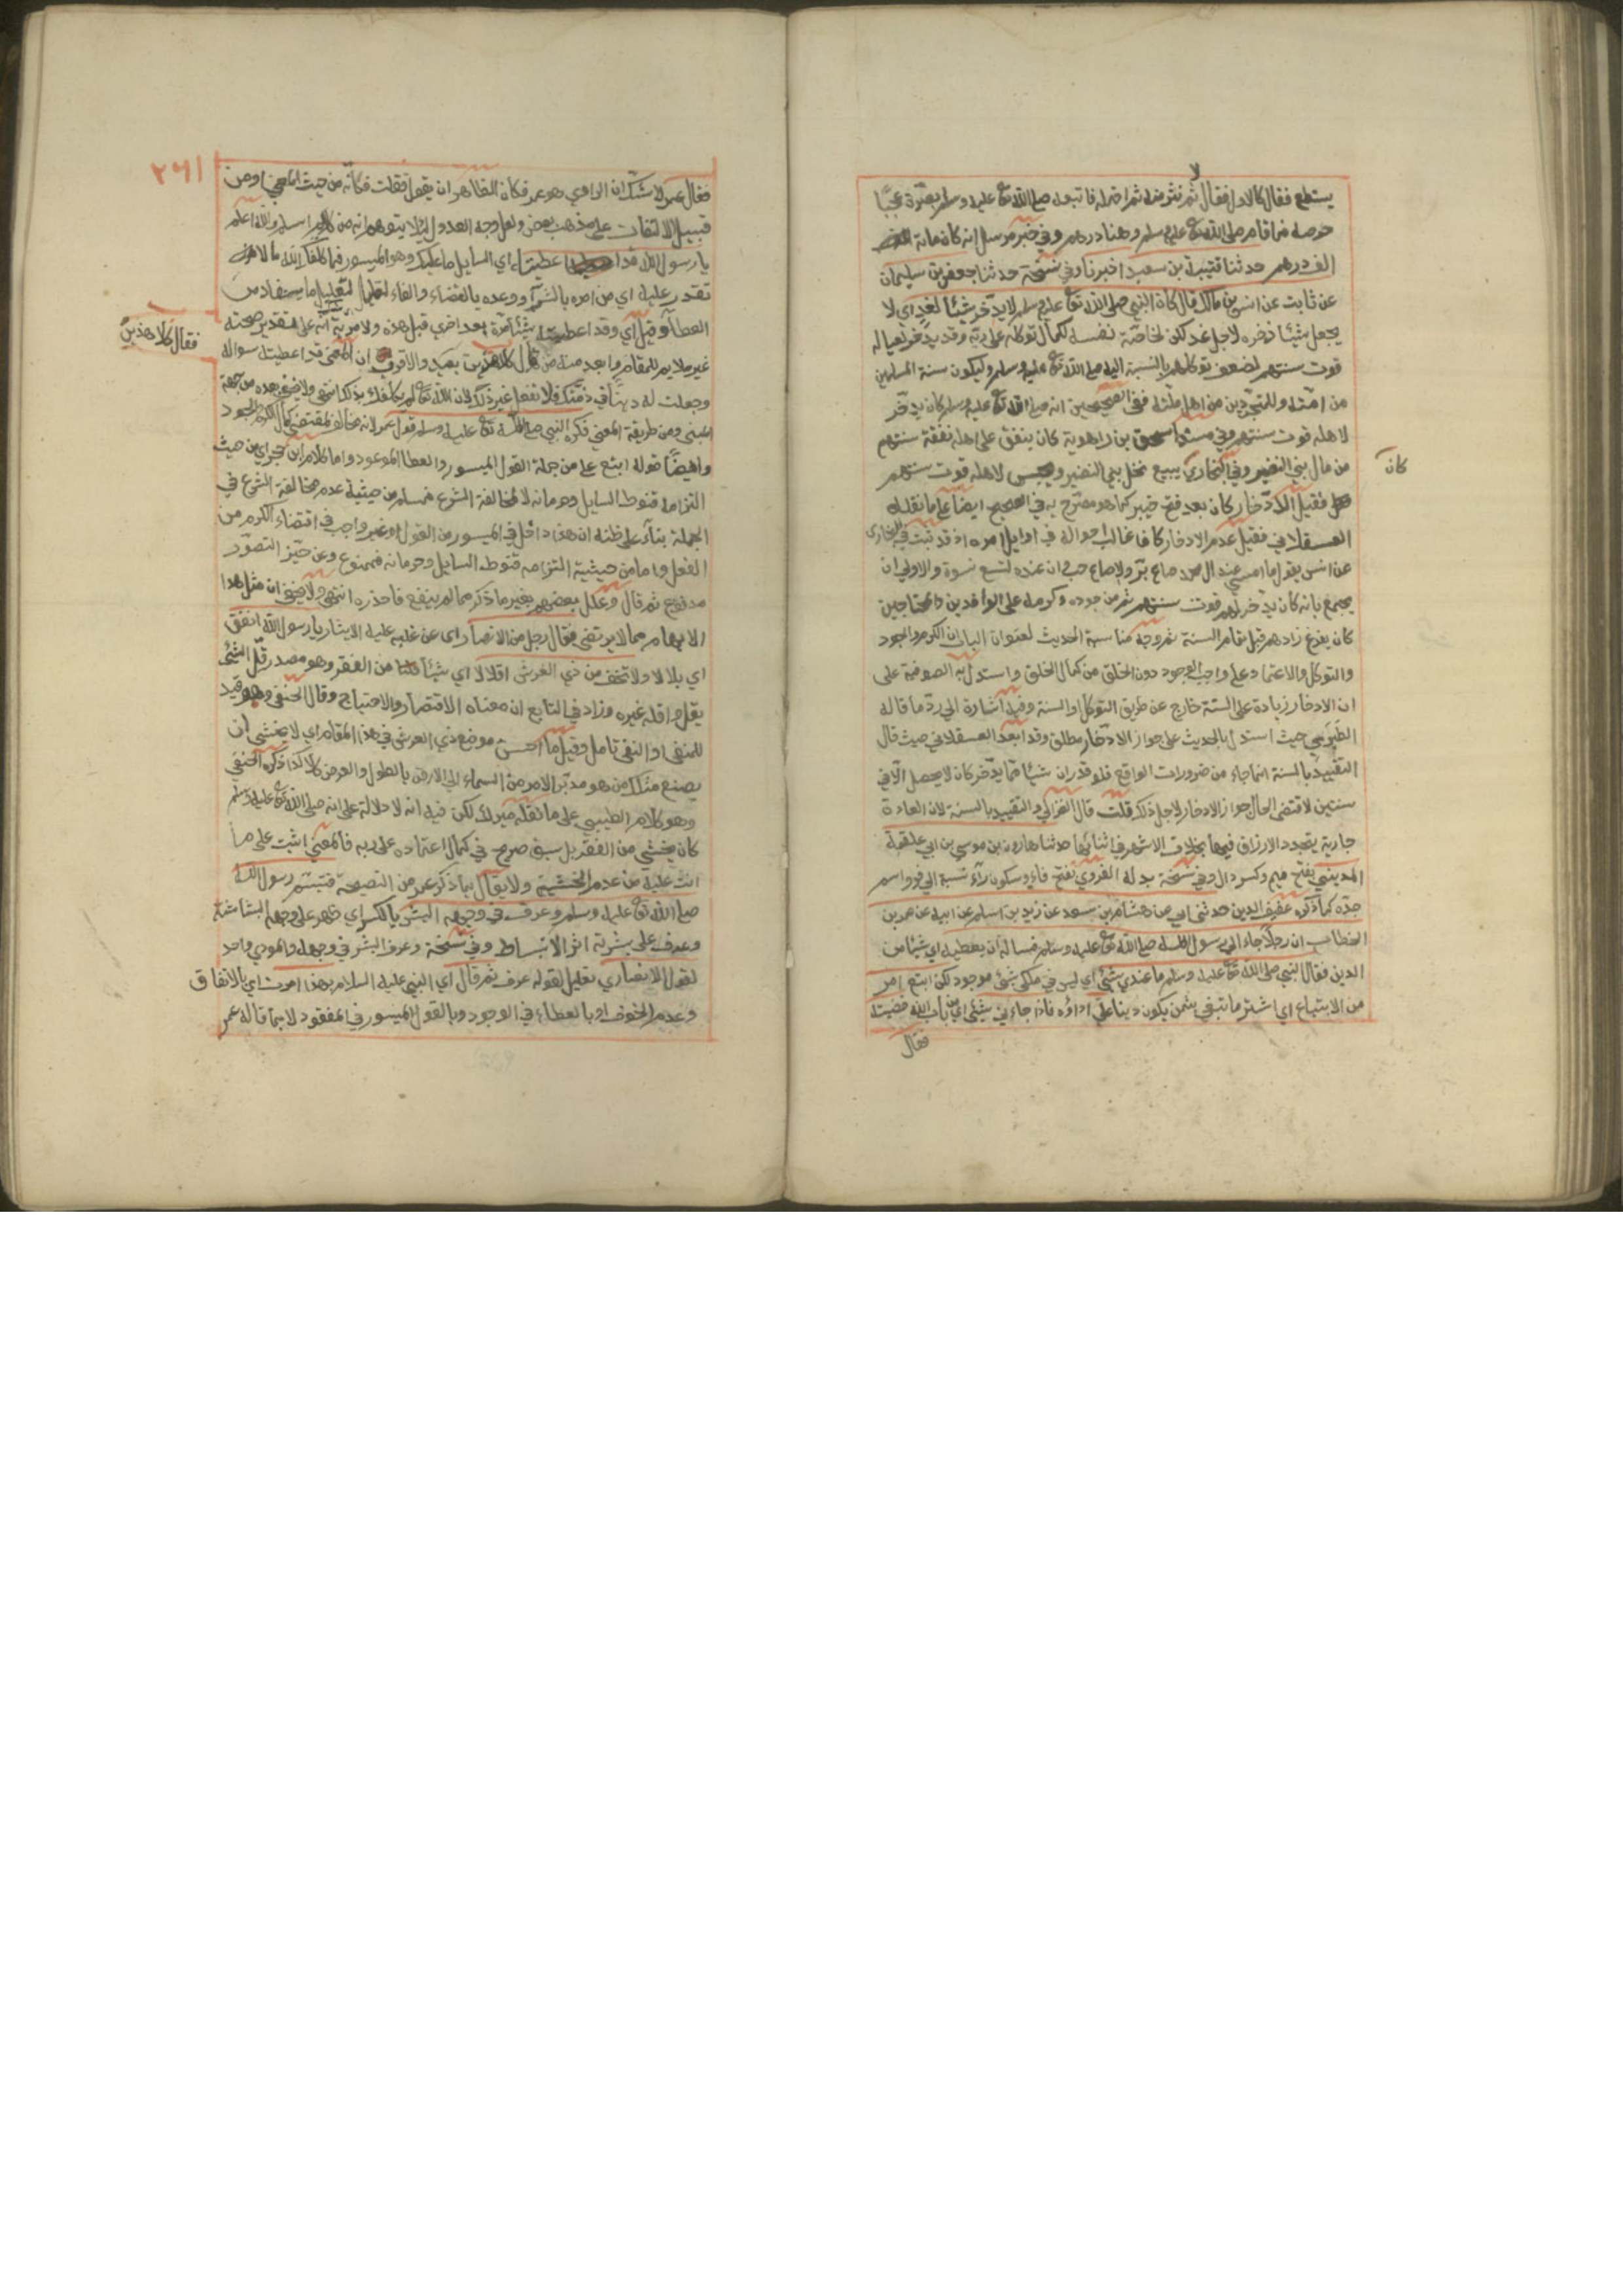 يستطع فقال كالاول فقال ثم نثر منه ثم اخذله فاتبعه صلى الله تع عليه وسلم بصرة عجبا
حرصه فما قام صلى الله تع عليه وسلم وهنا درهم وفي خبر مرسل انه كان مائة
الف درهم حدثنا قتيبة بن سعيد اخبرنا وفي نسخة حدثنا جعفر بن سليمان
عن ثابت عن انس بن مالك قال كان النبي صلى الله تع عليه وسلم لا يدخر شيئا لغد اي لا
يجعل شيئا ذخره لاجل غد لكن لخاصة نفسه لكمال توكله على ربه وقد يدخر لعياله
قوت سنتهم لضعف توكلهم بالنسبة اليه صلى الله تع عليه وسلم وليكون سنة المسلمين
من امته وللمتجردين من اهل ملته ففي الصحيحين انه صلى الله تع عليه وسلم كان يدخر
لاهله قوت سنتهم وفي مسند اسحق بن راهوية كان ينفق على اهله نفقة سنتهم
كان
من مال بني النضير وفي البخاري يبيع نخل بني النضير ويحبس لاهله قوت سنتهم
فقيل الادخار كان بعد فتح خيبر كما هو مصرح به في الصحيح ايضا على ما نقله
العسقلاني فقيل عدم الادخار كان غالب احواله في اوايل امره اذ قد ثبت في البخارى
عن انس يقول ما امسى عند ال محمد صاع بر ولا صاع حب وان عنده لتسع نسوة والاولى ان
يجمع بانه كان يدخر لهم قوت سنتهم ثم من جوده وكرمه على الوافدين والمحتاجين
كان يفرغ زادهم قبل تمام السنة ثم وجه مناسبة الحديث لعنوان الباب ان الكرم والجود
والتوكل والاعتماد على واجب الوجود دون الخلق من كمال الخلق واستدل به الصوفية على
ان الادخار زيادة على السنة خارج عن طريق التوكل والسنة وفيه اشارة الى رد ما قاله
الطبري حيث استدل بالحديث على جواز الادخار مطلق وقد ابعد العسقلاني حيث قال
التقييد بالسنة انما جاء من ضرورات الواقع فلو قدر ان شيئا مما يدخر كان لا يحصل الا في
سنتين لاقتضى الحال جواز الادخار لاجل ذلك قلت قال الغزالي والتقييد بالسنة لان العادة
جارية بتجدد الارزاق فيها بخلاف الاشهر في اثنائها حدثنا هارون بن موسى بن ابي علقمة
المديني بفتح ميم وكسر دال وفي نسخة بدله الفروي بفتح فاء وسكون راء نسبة الى فرو اسم
جده كما ذكره عفيف الدين حدثني ابي عن هشام بن سعد عن زيد بن اسلم عن ابيه عن عمر بن
الخطاب ان رجلا جاء الى رسول الله صلى الله تع عليه وسلم فساله ان يعطيه اي شيئا من
الدين فقال النبي صلى الله تع عليه وسلم ما عندي شيئ اي ليس في ملكي شئ موجود لكن ابتع امر
من الابتياع اي اشتر ما تبغي بثمن يكون دينا علي اداؤه فاذا جاءني شيئ اي من باب الله قضيته
فقال
٢٦١
فقال عمر لا شك ان الراوي هو عمر فكان الظاهر ان يقول فقلت فكأنه من حيث المعنى او من
قبيل الالتفات على مذهب بعض ولعل وجه العدول لئلا يتوهم انه من كلام اسلم والله اعلم
يا رسول الله قد اعطيته اي السايل ما عليك وهو الميسور فما كلفك الله ما لا
تقدر عليه اي من امره بالشرآ ووعده بالقضاء والفاء لتعليل ما يستفاد من
العطا وقيل اي وقد اعطيته شيئا مرة بعد اخرى قبل هذه ولا مرية انه على تقدير صحته
فقال كلا هذين
غير ملايم للمقام وابعد منه من قال كلا هذين بعيد والاقرب ان المعنى قد اعطيته سواله
وجعلت له دينا في ذمتك فلا تفعل غير ذلك لان الله تع لم يكلفك بذلك انتهى ولا يخفى بعده من جهة
المبنى ومن طريقة المعنى فكره النبي صلى الله تع عليه وسلم قول عمر لانه مخالف لمقتضى كمال الكرم والجود
وايضا قوله ابتع علي من جملة القول الميسور والعطا الموعود واما كلام ابن حجر اي من حيث
التزامه قنوط السايل وحرمانه لا لمخالفة الشرع فمسلم من حيثية عدم مخالفة الشرع في
الجملة بناء على ظنه ان هذا داخل في الميسور من القول او غير واجب في اقتضاء الكرم من
الفعل واما من حيثية التزامه قنوط السايل وحرمانه فممنوع وعن حيز التصور
مدفوع ثم قال وعلل بعضهم بغير ما ذكر مما لم ينفع فاحذره انتهى ولا يخفى ان مثل هذا
الابهام مما لا يرتضى فقال رجل من الانصار اى عن غلبه عليه الايثار يا رسول الله انفق
اي بلالا ولا تخف من ذي العرش اقلالا اي شيئا من الفقر وهو مصدر قل الشئ
يقل واقله غيره وزاد في التابع ان معناه الافتقار والاحتياج وقال الحنفي وهو قيد
للمنفى او النفي تامل وقيل ما احسن موضع ذي العرش في هذا المقام اي لا يخشى ان
يضيع مثلك من هو مدبر الامر من السماء الى الارض بالطول والعرض كلا كذا ذكره الحنفي
وهو كلام الطيبي على ما نقله ميرك لكن فيه انه لا دلالة على انه صلى الله تع عليه وسلم
كان يخشى من الفقر بل سبق صريح في كمال اعتماده على ربه فالمعنى اثبت على ما
انت عليه من عدم الخشية ولا يقال بما ذكر عمر من النصيحة فتبسم رسول الله
صلى الله تع عليه وسلم وعرف في وجهه البشر بالكسر اي ظهر على وجهه البشاشة
وعرف على بشرته اثر الانبساط وفي نسخة وعرف البشر في وجهه والمودي واحد
لقول الانصاري تعليل لقوله عرف ثم قال اي النبي عليه السلام بهذا امرت اي بالانفاق
وعدم الخوف او بالعطاء في الوجود وبالقول الميسور في المفقود لا بما قاله عمر